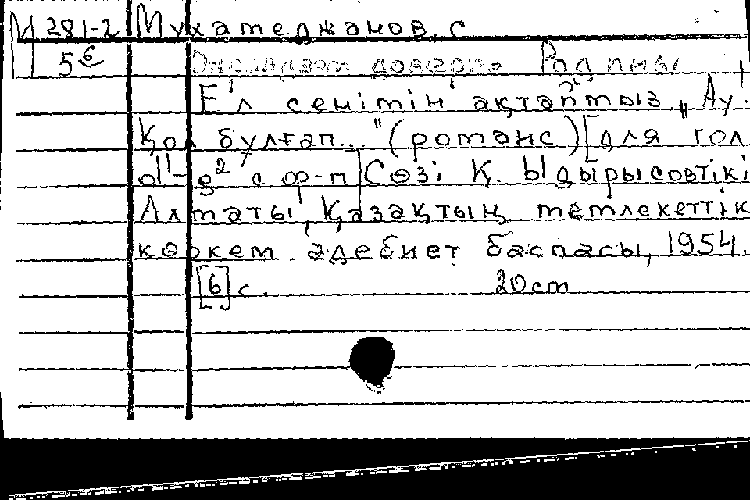 М 281-2 Мухамеджанов, С
5б Оправдаем доверие Родины
Ел сенімін ақтаймыз "Ау.
Қол бұлғап..." (романс) [для гол
d¹-g² с ф-п] Сөзі Қ. Ыдырысовтікі
Алматы, Қазақтың мемлекеттік
көркем әдебиет баспасы, 1954.
[6] с. 20 cm